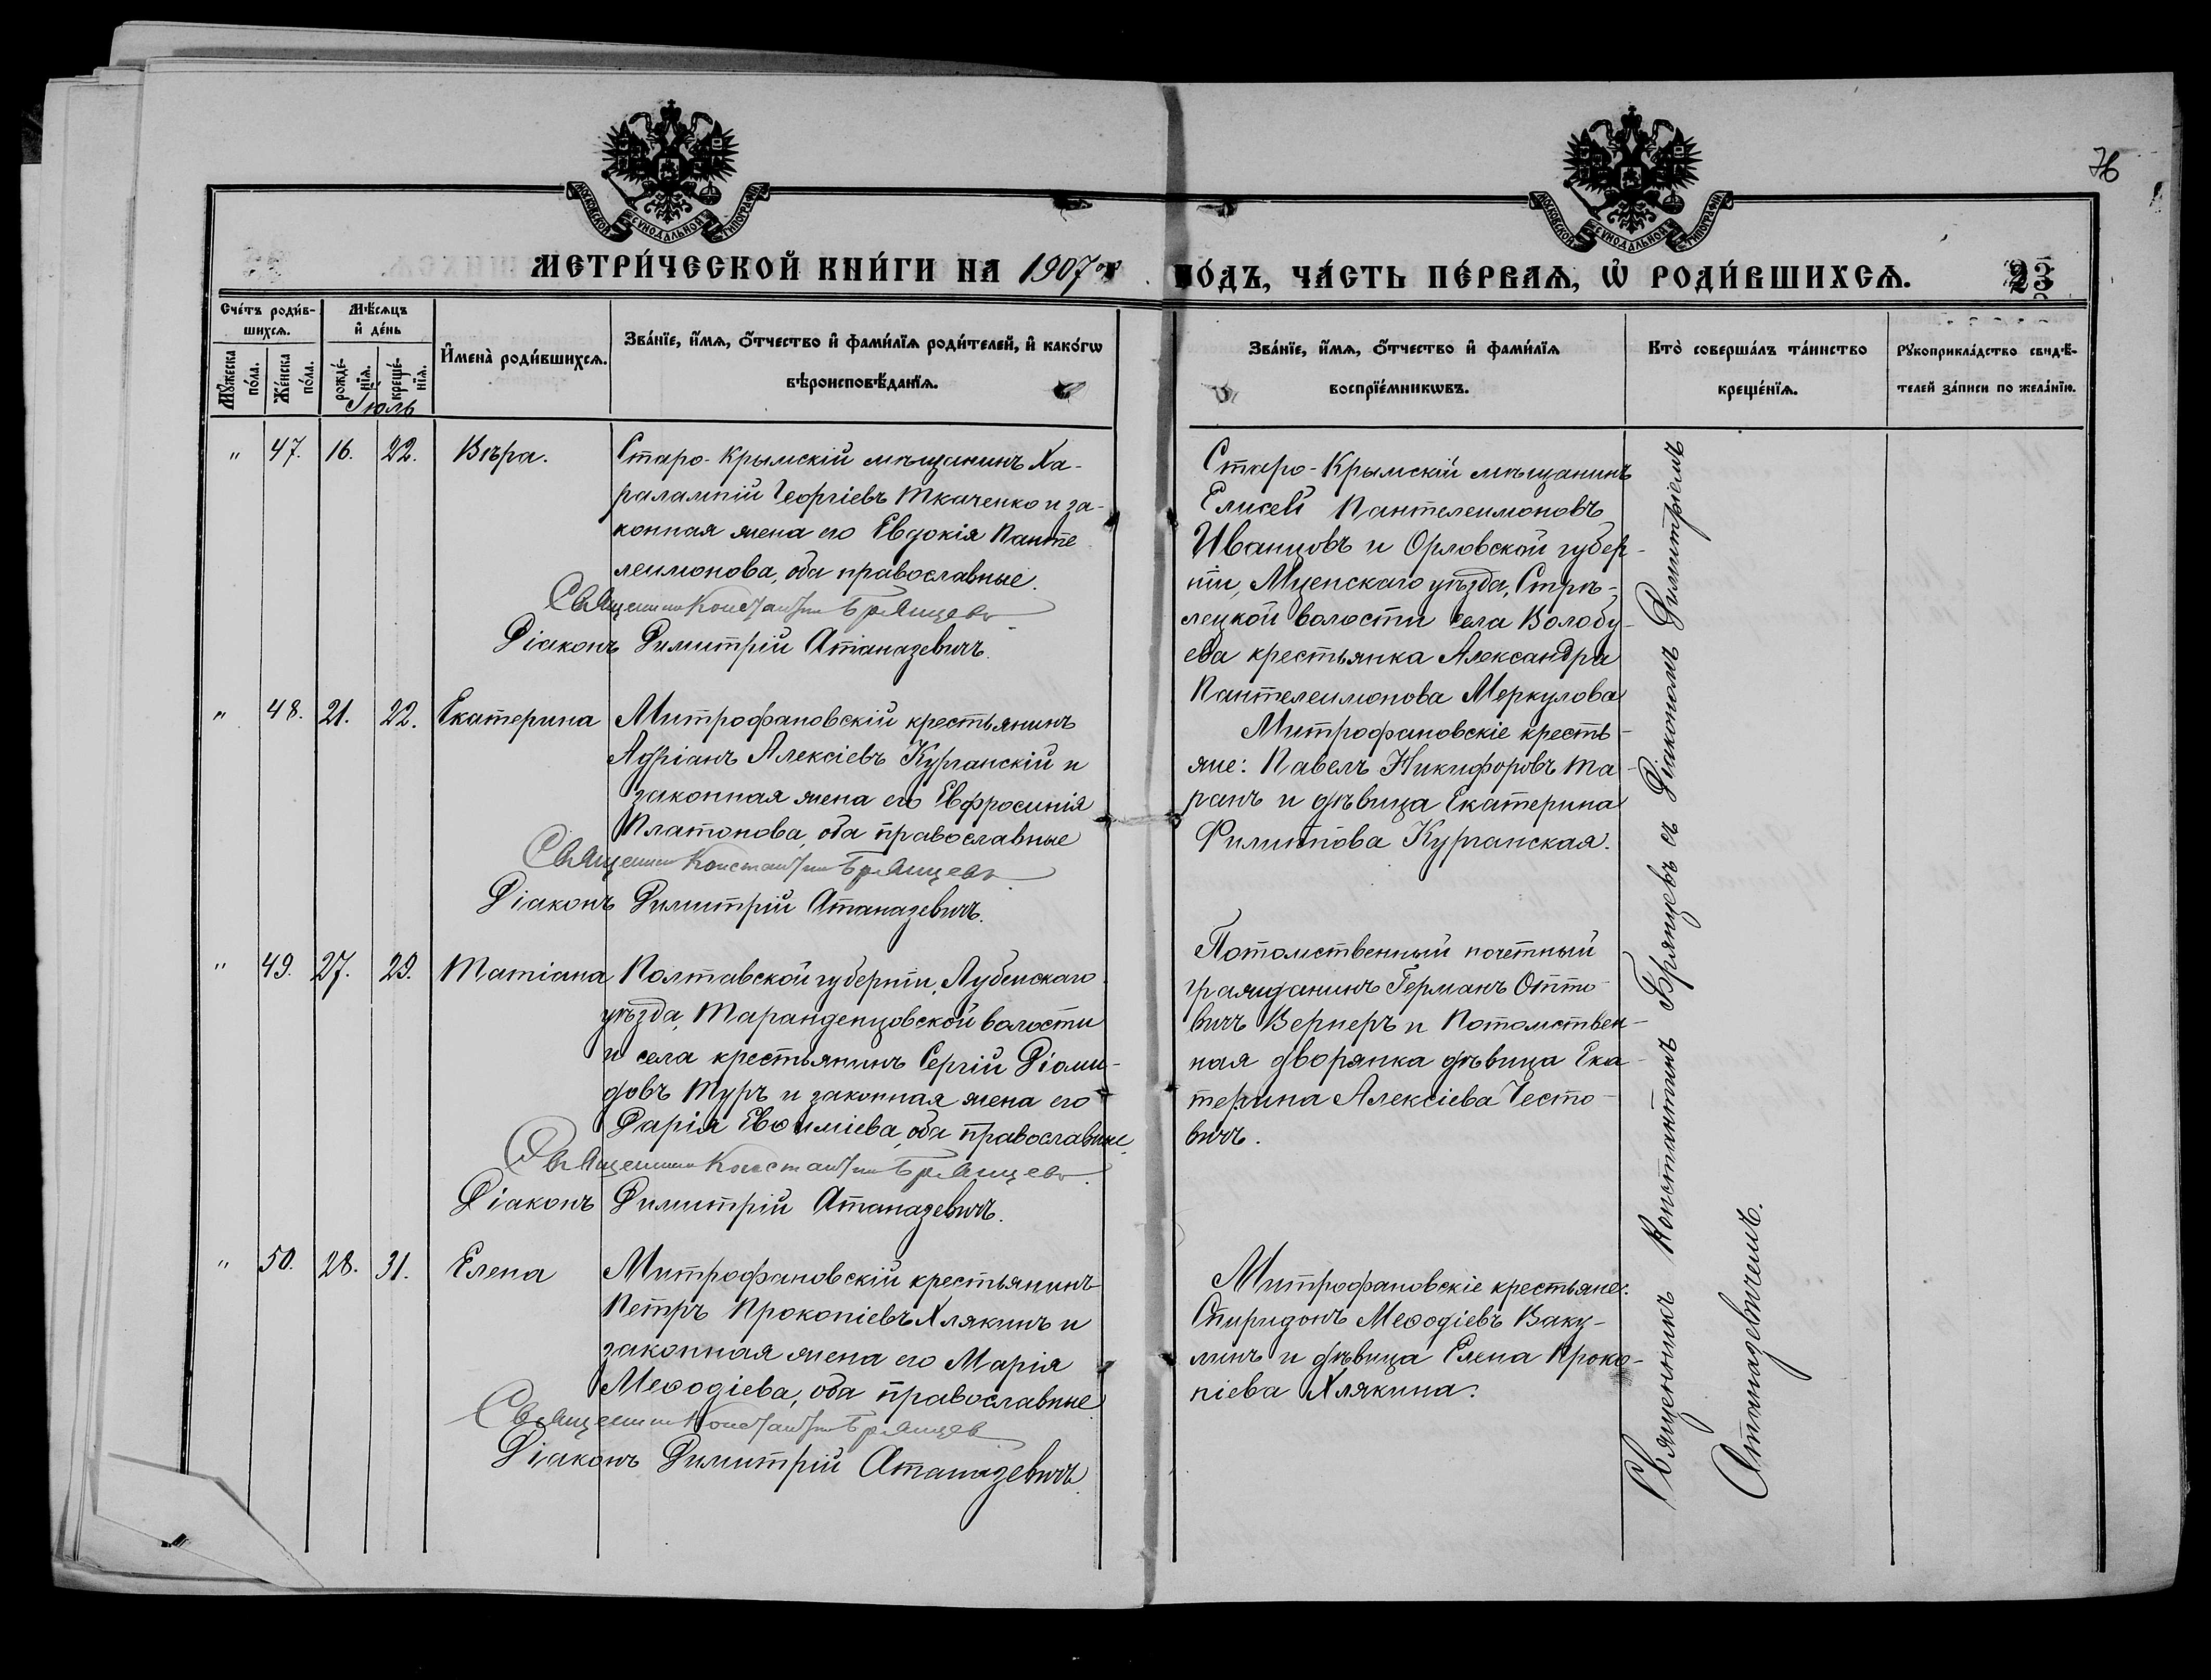 76
МОСКОВСКОЙ СѴНОДАЛЬНОЙ ТИПОГРАФІИ
МОСКОВСКОЙ СѴНОДАЛЬНОЙ ТИПОГРАФІИ
МЕТРИ́ЧЕСКОЙ КНИ́ГИ НА 1907 ГО́ДЪ, ЧА́СТЬ ПЕ́РВАѦ, Ѡ҆ РОДИ́ВШИХСѦ.
23
Сче́тъ роди́в-
шихсѧ.
Мꙋ́жеска по́ла.
Же́нска по́ла.
Мѣ́сѧцъ
и҆ де́нь
рожде́-
нїѧ.
креще́-
нїѧ.
Іюль
И҆мена̀ роди́вшихсѧ.
Зва́нїе, и҆́мѧ, ѻ҆́тчество и҆ фами́лїѧ роди́телей, и҆ како́гѡ
вѣроисповѣ́данїѧ.
Зва́нїе, и҆́мѧ, ѻ҆́тчество и҆ фами́лїѧ
воспрїе́мникѡвъ.
Кто̀ соверша́лъ та́инство
креще́нїѧ.
Рꙋкоприкла́дство свидѣ́-
телей за́писи по жела́нїю.
" 47. 16. 22. Вѣра.
Старо-Крымскій мѣщанинъ Ха-
ралампій Георгіевъ Ткаченко и за-
конная жена его Евдокія Панте
леимонова, оба православные.
Священникъ Константинъ Брянцевъ
Діаконъ Димитрій Атаназевичъ.
Старо-Крымскій мѣщанинъ
Елисей Пантелеимоновъ
Иванцовъ и Орловской губер-
ніи, Мценскаго уѣзда, Стрѣ-
лецкой волости села Волобу-
ева крестьянка Александра
Пантелеимонова Меркулова
" 48. 21. 22. Екатерина
Митрофановскій крестьянинъ
Адріанъ Алексіевъ Курганскій и
законная жена его Евфросинія
Платонова, оба православные
Священникъ Константинъ Брянцевъ
Діаконъ Димитрій Атаназевичъ.
Митрофановскіе кресть-
яне: Павелъ Никифоровъ Та-
ранъ и дѣвица Екатерина
Филиппова Курганская.
" 49. 27. 29. Татіана
Полтавской губерніи, Лубенскаго
уѣзда, Тарандинцовской волости
и села крестьянинъ Сергій Діоми-
довъ Туръ и законная жена его
Дарія Евѳиміева, оба православные.
Священникъ Константинъ Брянцевъ.
Діаконъ Димитрій Атаназевичъ.
Потомственный почетный
гражданинъ Германъ Отто-
вичъ Вернеръ и Потомствен-
ная дворянка дѣвица Ека-
терина Алексіева Често-
вичъ.
" 50. 28. 31. Елена
Митрофановскій крестьянинъ
Петръ Прокопіевъ Хлякинъ и
законная жена его Марія
Меѳодіева, оба православные
Священникъ Константинъ Брянцев
Діаконъ Димитрій Атаназевичъ.
Митрофановскіе крестьяне:
Спиридонъ Меѳодіевъ Ваку-
линъ и дѣвица Елена Проко-
піева Хлякина.
Священникъ Константинъ Брянцевъ съ Діакономъ Димитріемъ
Атаназевичемъ.